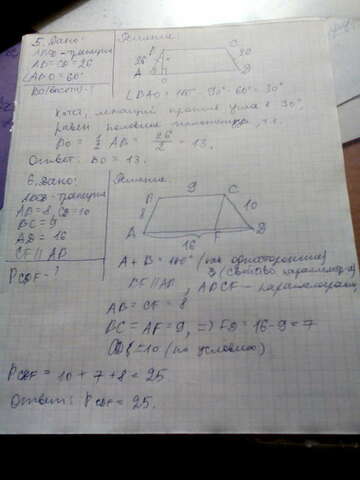 5. Дано: Решение:
ABCD - трапеция
AB = CD = 26
∠ABO = 60°
BO (высот) - ?
B C
26 30
A O D
∠BAO = 180° - 90° - 60° = 30°
Катет, лежащий против угла в 30°,
равен половине гипотенузы, т.е.
BO = 1/2 AB = 26/2 = 13.
Ответ: BO = 13.
6. Дано: Решение
ABCD - трапеция
AB = 8, CD = 10
BC = 9
AD = 16
CF || AB
P CDF - ?
B 9 C
8 10
A 16 F D
A + B = 180° (как односторонние)
CF || AB, ABCF - параллелограмм,
(свойство параллелогр-а)
AB = CF = 8
BC = AF = 9, => FD = 16 - 9 = 7
CD = 10 (по условию)
P CDF = 10 + 7 + 8 = 25
Ответ: P CDF = 25.